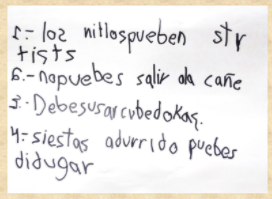 1.- los nitlospueben str
tists
6.- napuebes salir ala cañe
3.- Debesusarcubedokas.
4.- siestas adurrido puebes
didugar